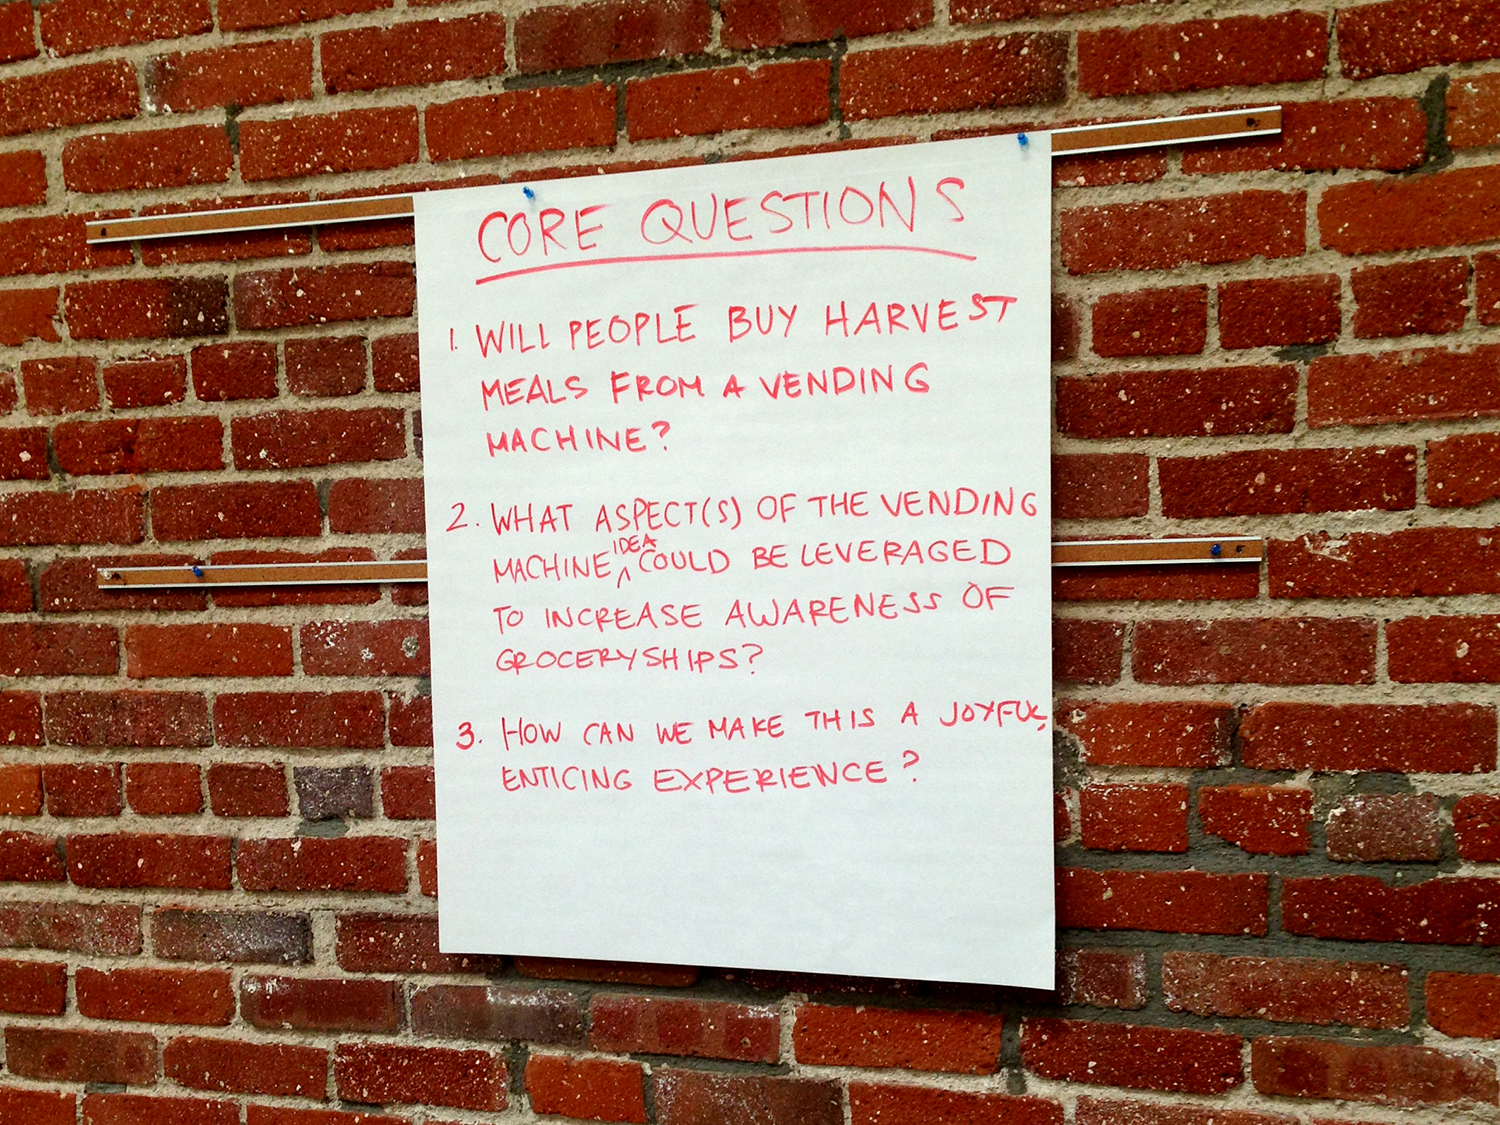 CORE QUESTIONS
1. WILL PEOPLE BUY HARVEST
MEALS FROM A VENDING
MACHINE?
2. WHAT ASPECT(S) OF THE VENDING
MACHINE ^IDEA COULD BE LEVERAGED
TO INCREASE AWARENESS OF
GROCERYSHIPS?
3. HOW CAN WE MAKE THIS A JOYFUL,
ENTICING EXPERIENCE?